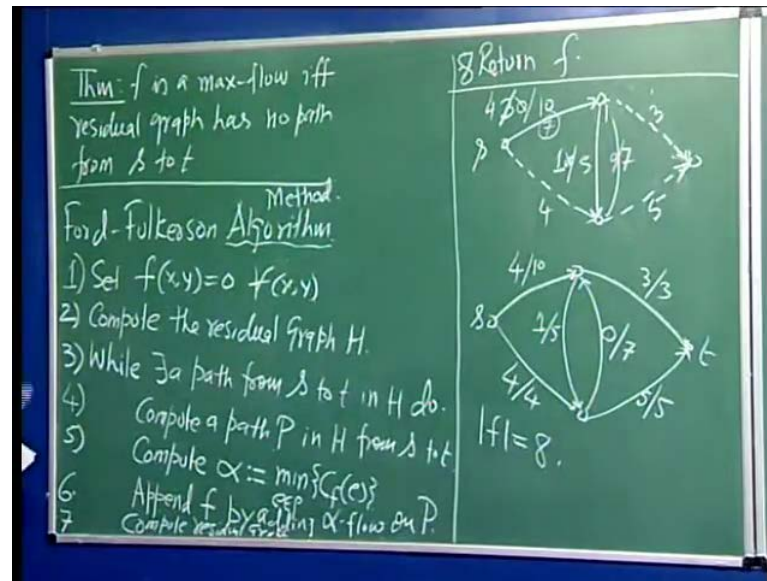 Thm: f is a max-flow iff
residual graph has no path
from s to t
Ford-Fulkerson Algorithm
Method.
1) Set f(x,y)=0 ∀(x,y)
2) Compute the residual Graph H.
3) While ∃ a path from s to t in H do.
4) Compute a path P in H from s to t
5) Compute α := min{C_f(e)}
e∈P
6. Append f by adding α-flow on P.
7 Compute residual
8 Return f.
4
/10
7
3
s
5
7
4
5
4/10
3/3
s
1/5
0/7
t
4/4
5/5
|f|=8.